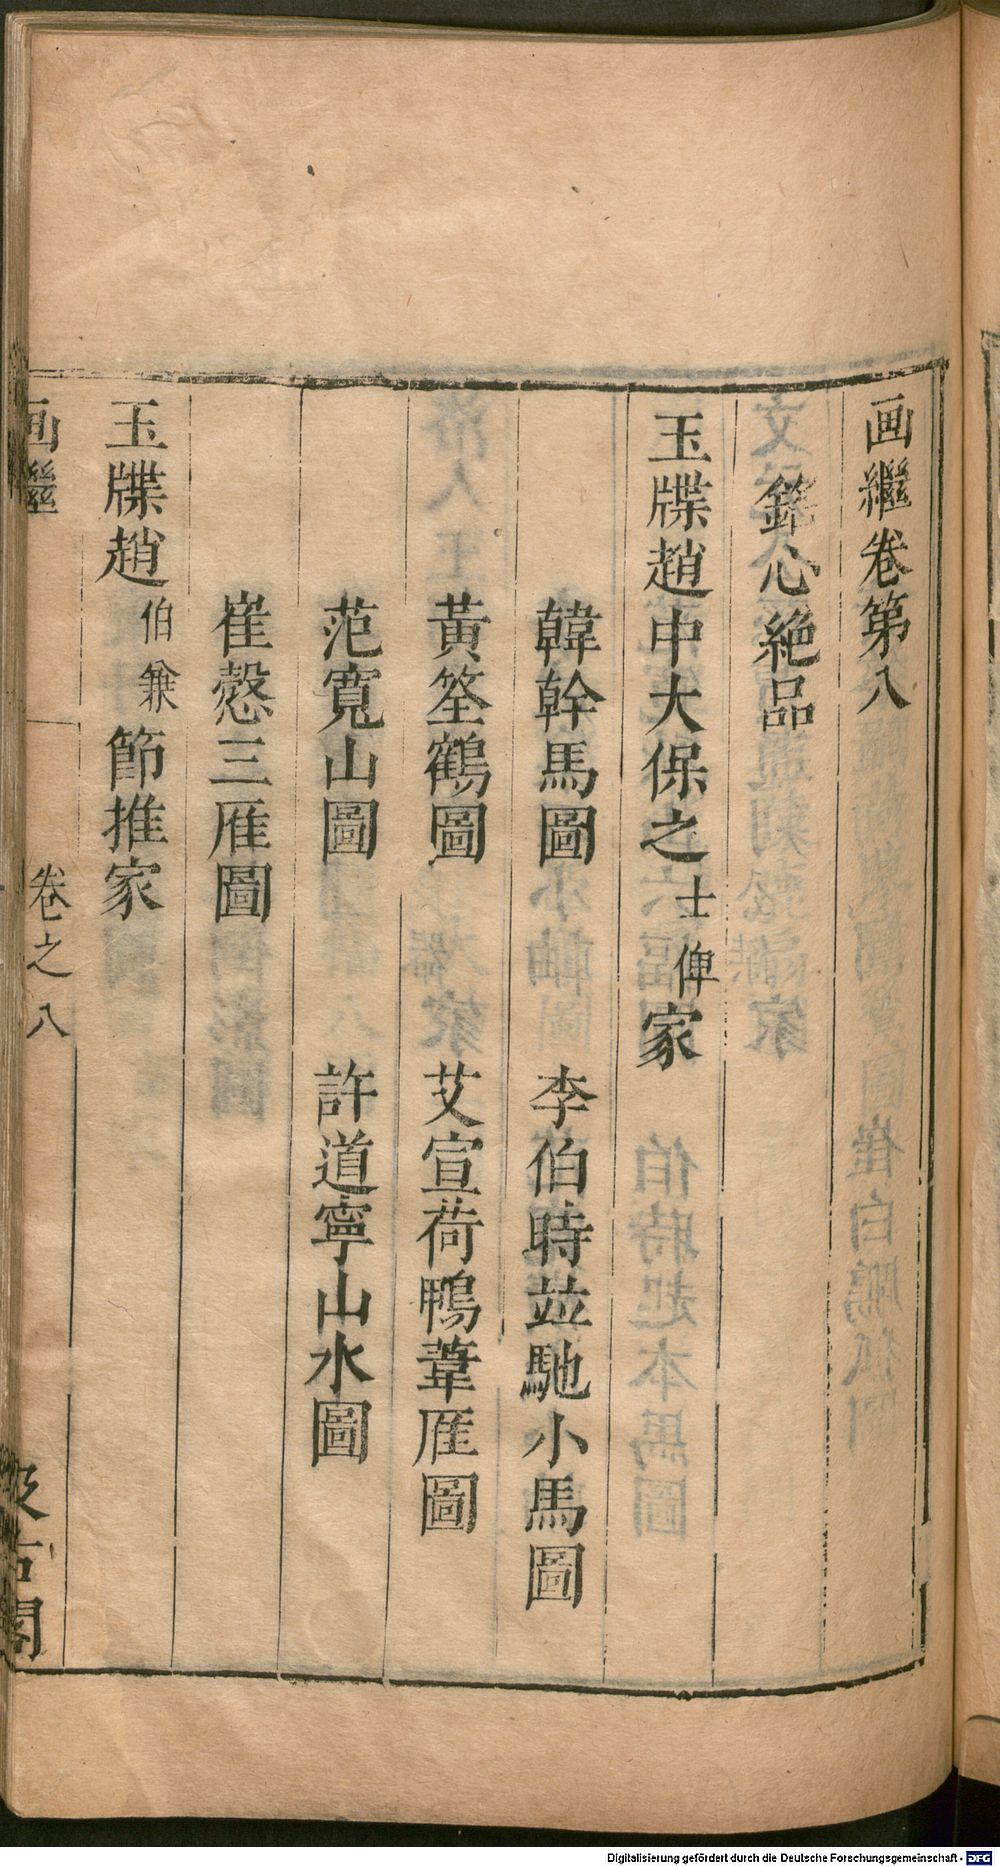 画繼卷第八
銘心絶品
玉牒趙中大保之士俾家
韓幹馬圖　李伯時並馳小馬圖
黃筌鶴圖　艾宣荷鴨葦雁圖
范寬山圖　許道寧山水圖
崔慤三雁圖
玉牒趙伯兼節推家
画繼　卷之八　汲古閣
Digitalisierung gefördert durch die Deutsche Forschungsgemeinschaft - DFG